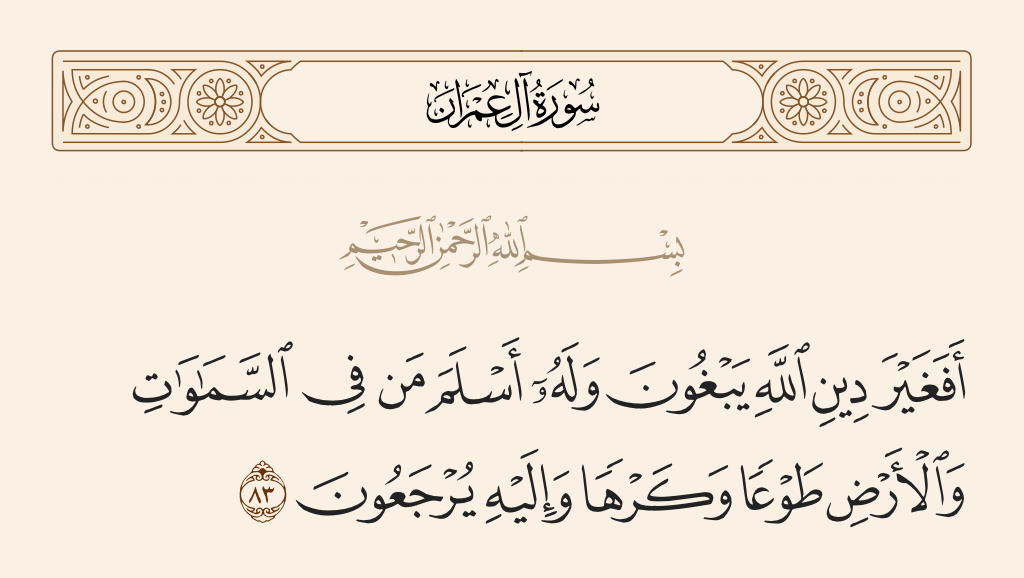 سُورَةُ آلِ عِمْرَان
بِسْمِ ٱللَّهِ ٱلرَّحْمَٰنِ ٱلرَّحِيمِ
أَفَغَيْرَ دِينِ ٱللَّهِ يَبْغُونَ وَلَهُۥٓ أَسْلَمَ مَن فِى ٱلسَّمَٰوَٰتِ
وَٱلْأَرْضِ طَوْعًا وَكَرْهًا وَإِلَيْهِ يُرْجَعُونَ ٨٣